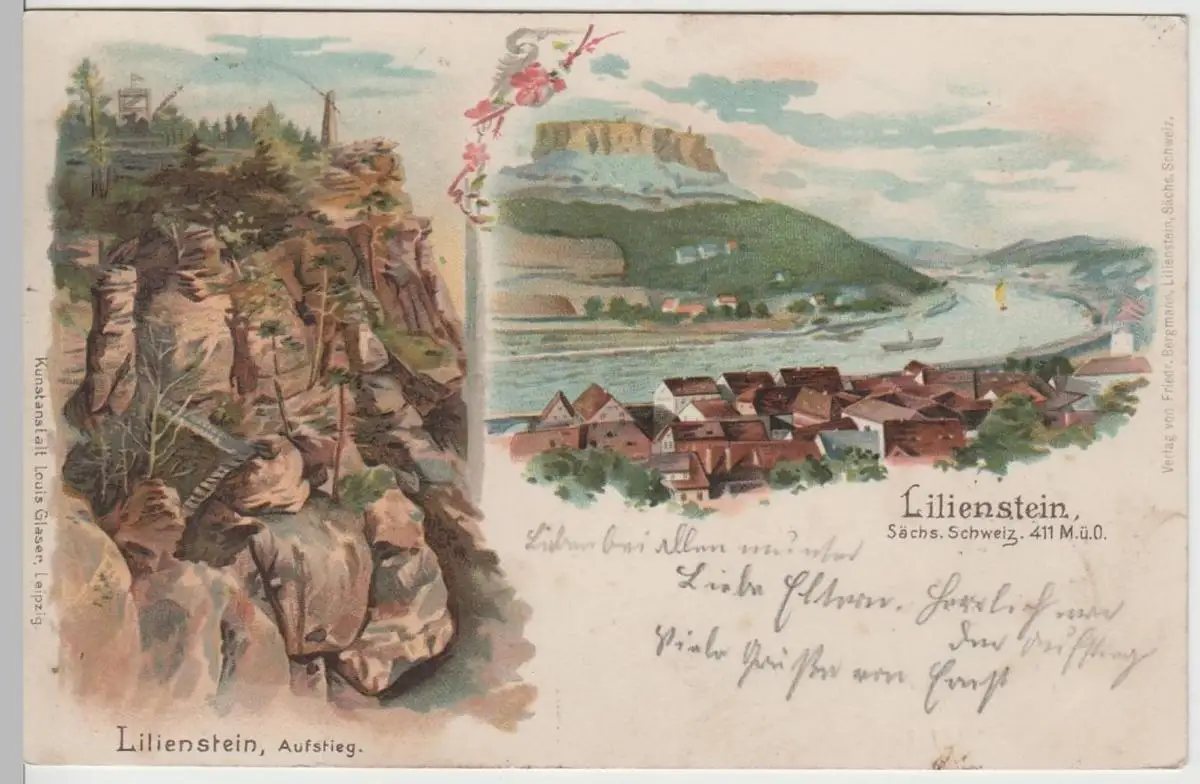 Lilienstein, Aufstieg.
Kunstanstalt Louis Glaser, Leipzig.
Lilienstein,
Sächs. Schweiz. 411 M.ü.O.
Verlag von Friedr. Bergmann, Lilienstein, Sächs. Schweiz.
bei allen munter
Liebe Eltern. Herrlich war
der Aufstieg
Viele Grüße von Ernst